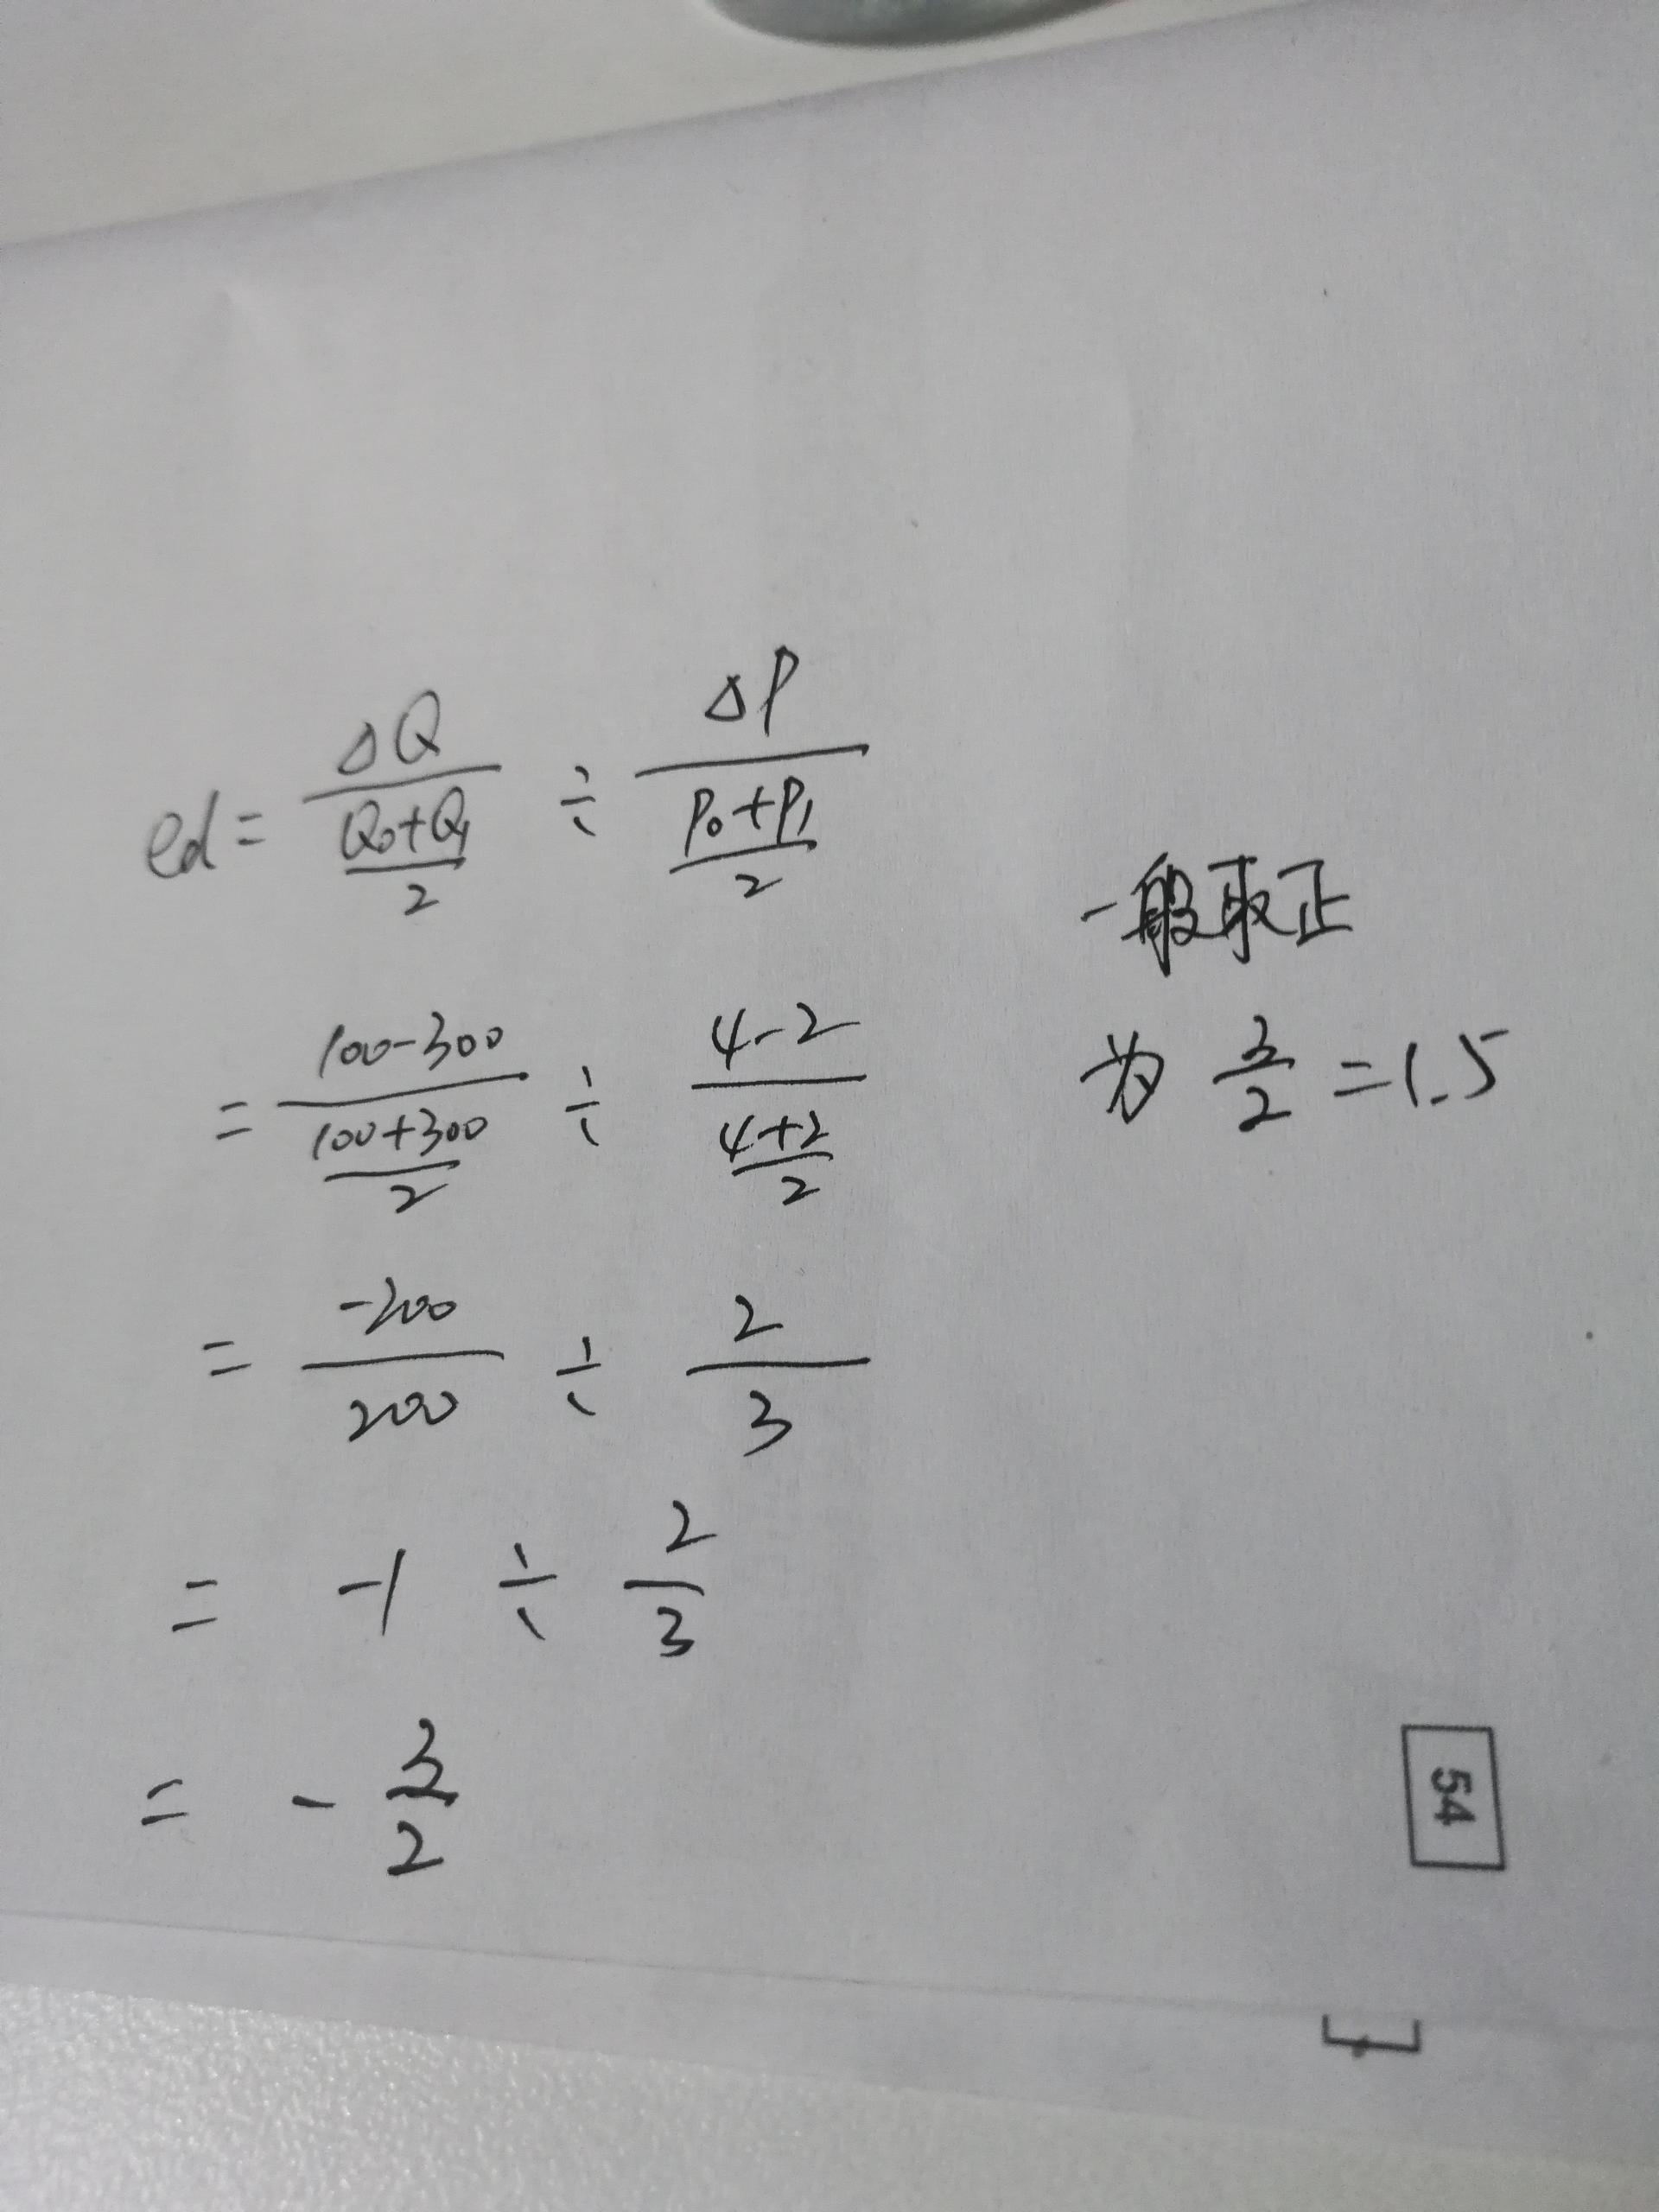 ed = ΔQ / ((Q₀+Q₁)/2) ÷ ΔP / ((P₀+P₁)/2)
= (100-300) / ((100+300)/2) ÷ (4-2) / ((4+2)/2)
= -200/200 ÷ 2/3
= -1 ÷ 2/3
= - 3/2
一般取正
为 3/2 = 1.5
54